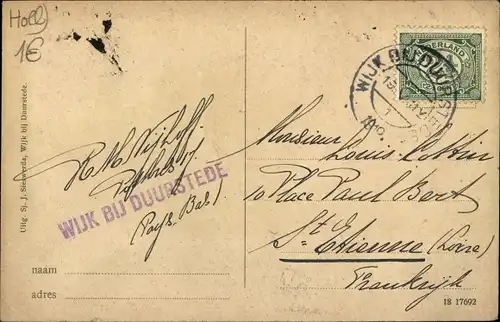 Holl
1€
Uitg. Sj. J. Wijk bij Duurstede.
WIJK BIJ DUURSTEDE
(Pays Bas)
naam
adres
NEDERLAND
WIJK BIJ DUURSTEDE
Monsieur
Louis
10 Place Paul Bert
St. Etienne (Loire)
Frankrijk
18 17692